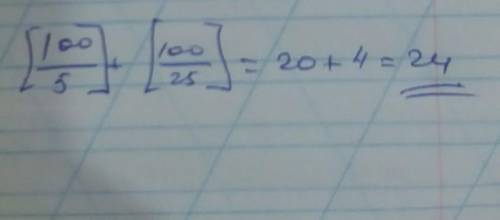 [100/5] + [100/25] = 20 + 4 = 24